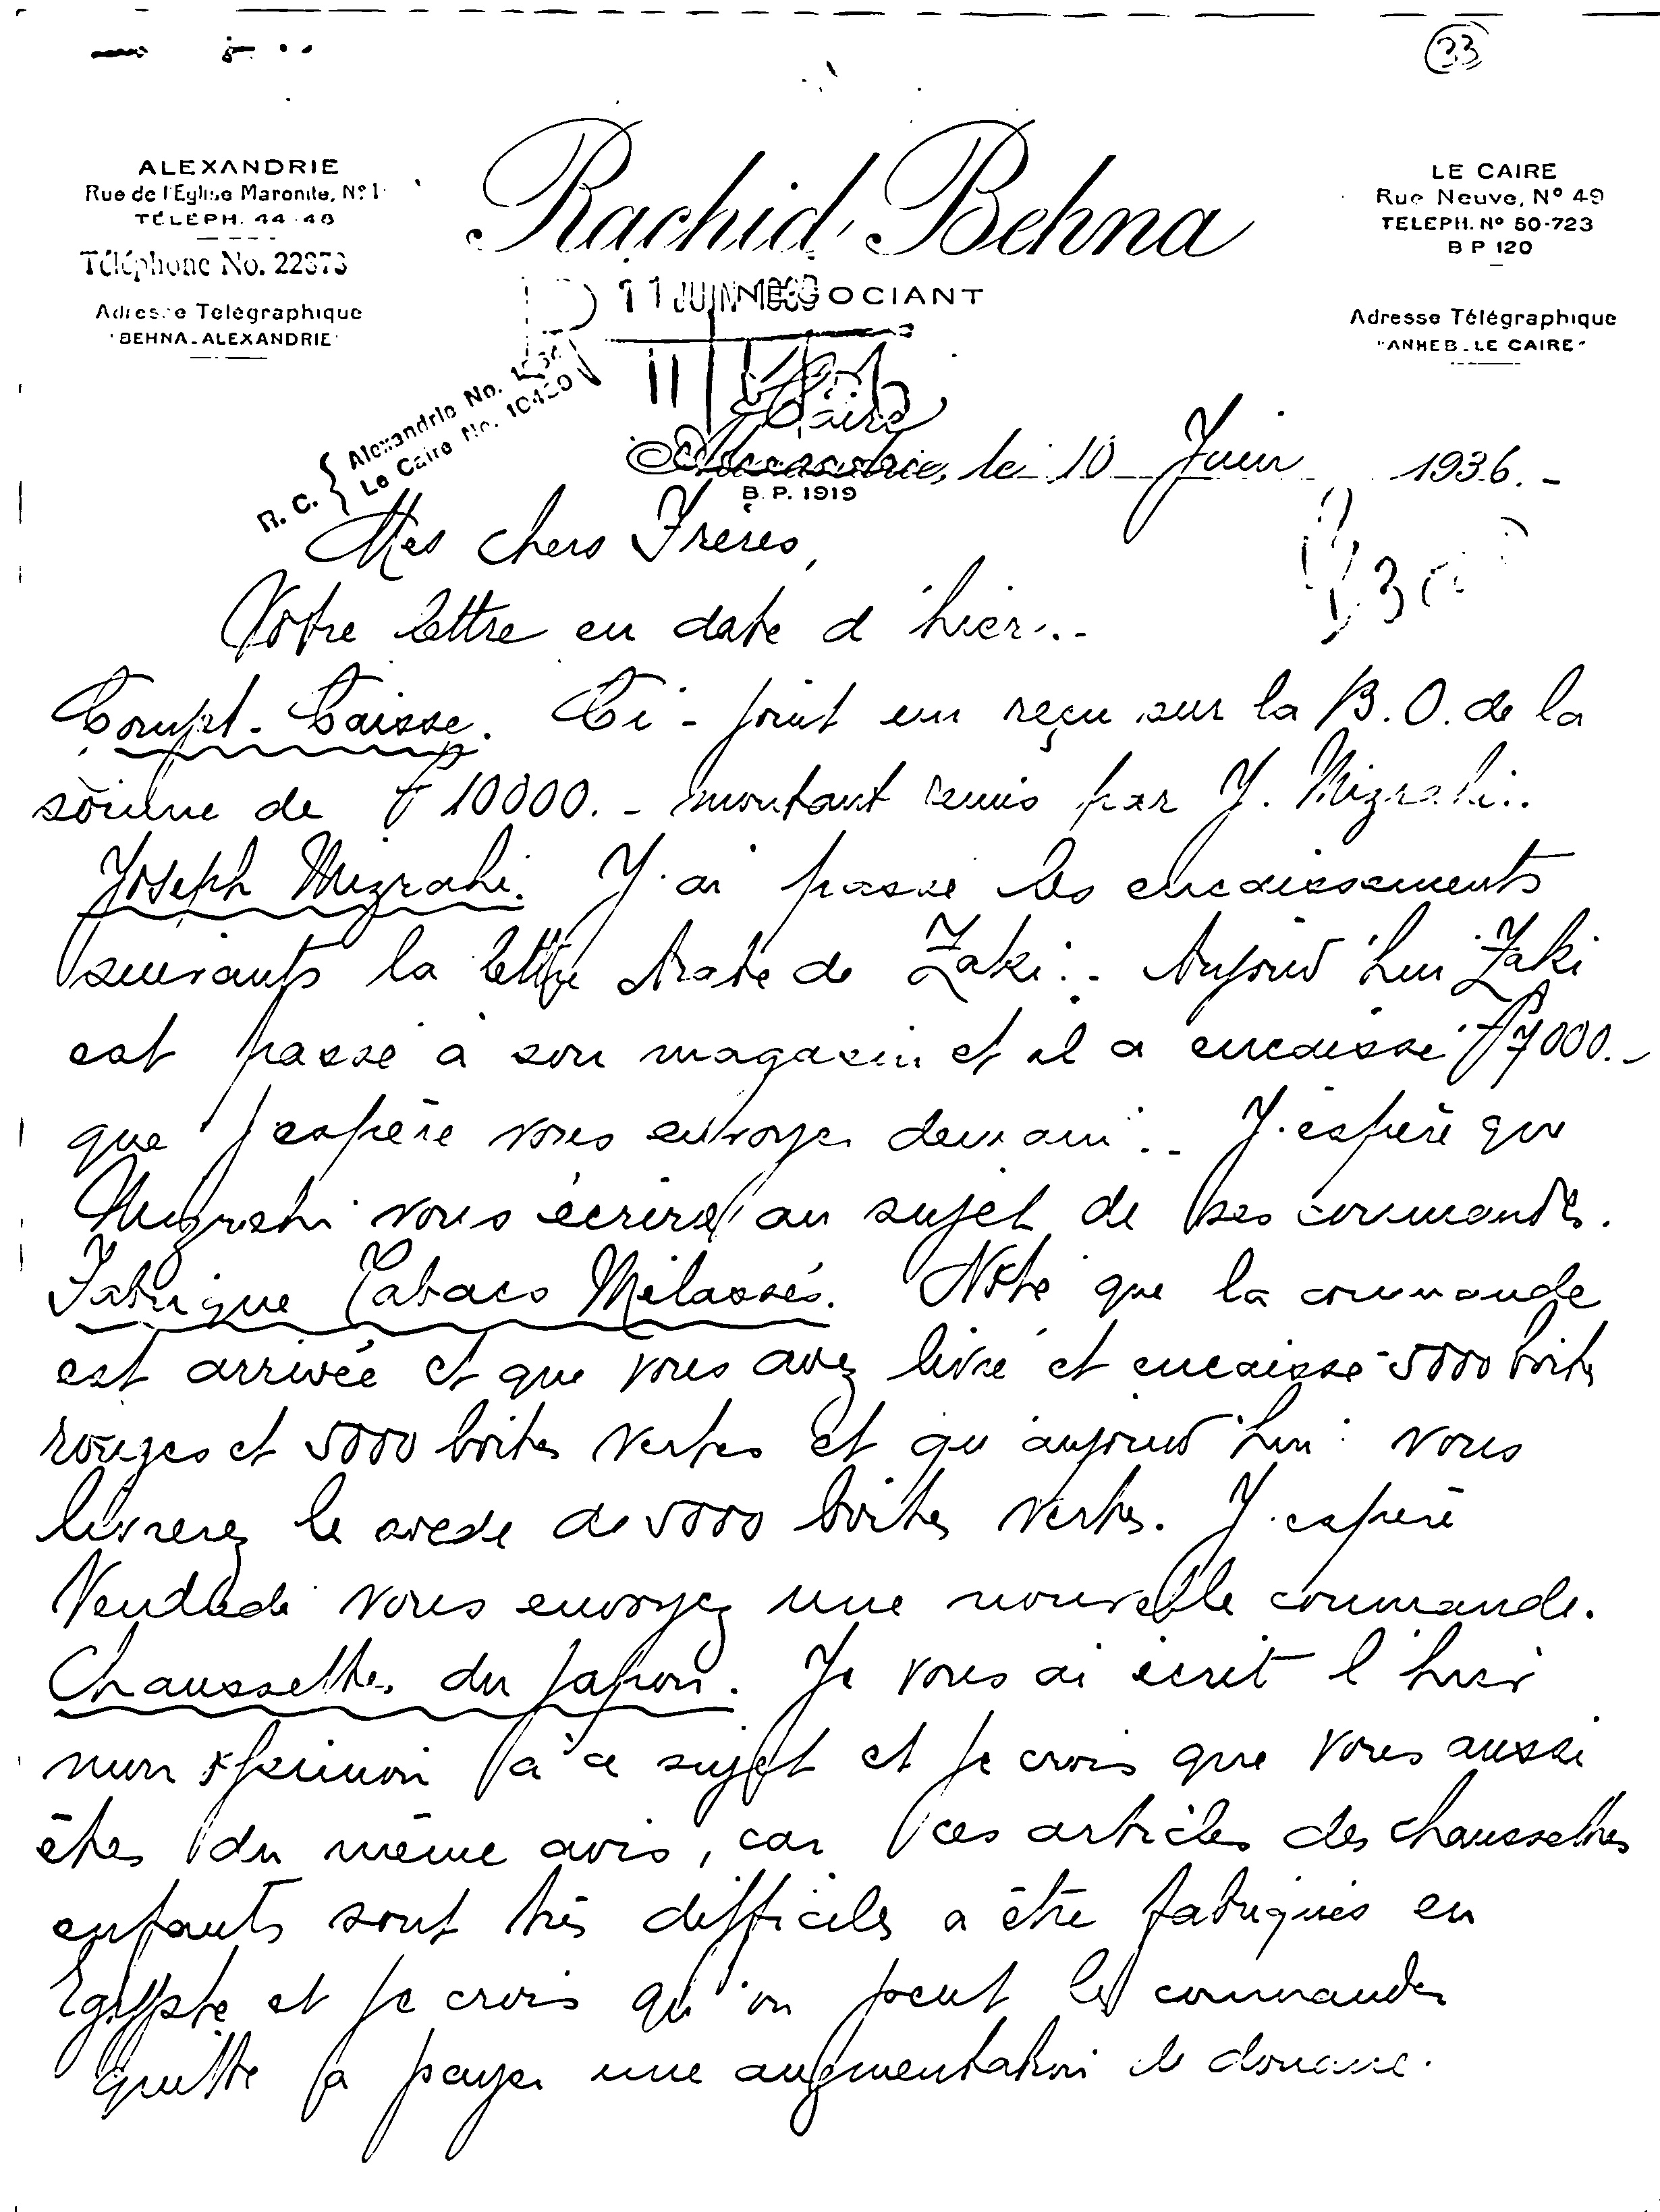 33
ALEXANDRIE
Rue de l'Eglise Maronite, Nº 1
TÉLÉPH. 44-48
Téléphone No. 22373
Adresse Télégraphique
"BEHNA-ALEXANDRIE"
Rachid Behna
NÉGOCIANT
11 JUIN 1936
LE CAIRE
Rue Neuve, Nº 49
TELEPH. Nº 50-723
B P 120
Adresse Télégraphique
"ANHEB-LE CAIRE"
R. C. { Alexandrie No.
Le Caire No.
Caire
Alexandrie, le 10 Juin 1936.-
B. P. 1919
Mes chers Frères,
Votre lettre en date d'hier..-
Compt-Caisse. Ci-joint un reçu sur la B.O. de la
somme de P 10000.- montant remis par J. Mizrahi..
Joseph Mizrahi. J'ai passé les encaissements
suivants la lettre Arabe de Zaki.- Aujourd'hui Zaki
est passé à son magasin et il a encaissé P 7000.-
que j'espère vous envoyer demain.- J'espère que
Mizrahi vous écrira au sujet de ses commandes.
Fabrique Tabacs Mélassés. Noté que la commande
est arrivée et que vous avez livré et encaissé 5000 boites
rouges et 5000 boites vertes et qu'aujourd'hui vous
livrerez le solde de 5000 boites vertes. J'espère
Vendredi vous envoyez une nouvelle commande.
Chaussettes du Japon. Je vous ai écrit l'hier
mon opinion à ce sujet et je crois que vous aussi
êtes du même avis, car ces articles des chaussettes
enfants sont très difficiles a être fabriqués en
Egypte et je crois qu'on peut les commander
quitte à payer une augmentation de douane.